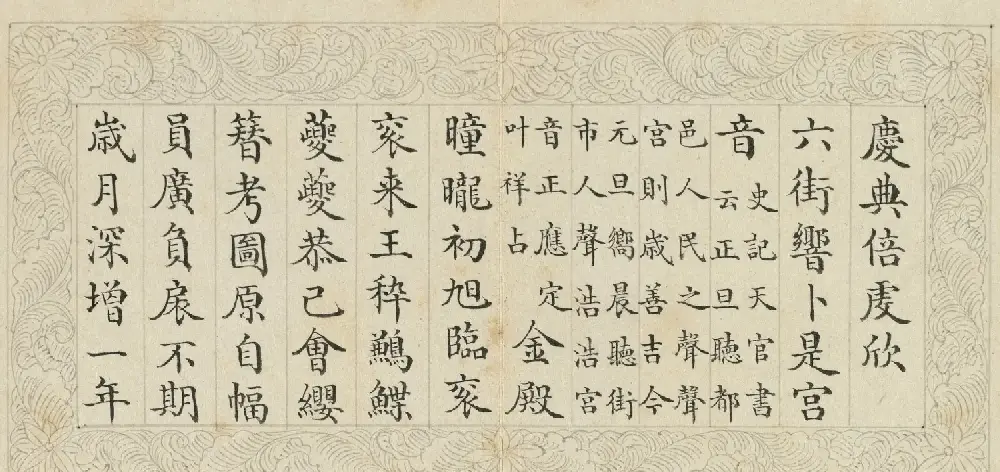 慶典倍虔欣
六街響卜是宮
音史記天官書
云正旦聽都
邑人民之聲聲
宮則歳善吉今
元旦嚮晨聽街
市人聲浩浩宮
音正應定
叶祥占
金殿
曈曨初旭臨袞
袞来王稡鶼鰈
夔夔恭己會纓
簪考圖原自幅
員廣負扆不期
歳月深增一年